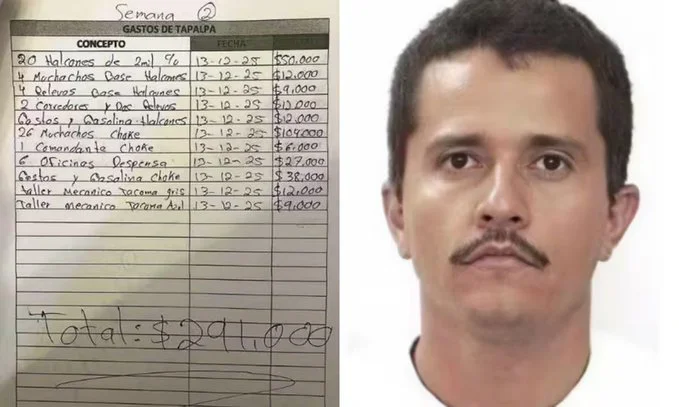 Semana ②
GASTOS DE TAPALPA
CONCEPTO FECHA
20 Halcones de 2mil % 13-12-25 $50,000
4 Muchachos Base Halcones 13-12-25 $12,000
4 Relevos Base Halcones 13-12-25 $9,000
2 Corredores y Dos Relevos 13-12-25 $12,000
Gastos y Gasolina Halcones 13-12-25 $12,000
26 Muchachos choke 13-12-25 $104,000
1 Comandante Choke 13-12-25 $6,000
6 Oficinas Despensa 13-12-25 $27,000
Gastos y Gasolina choke 13-12-25 $38,000
Taller Mecanico Tacoma gris 13-12-25 $12,000
Taller mecanico Tacoma Azul 13-12-25 $9,000
Total: $291,000